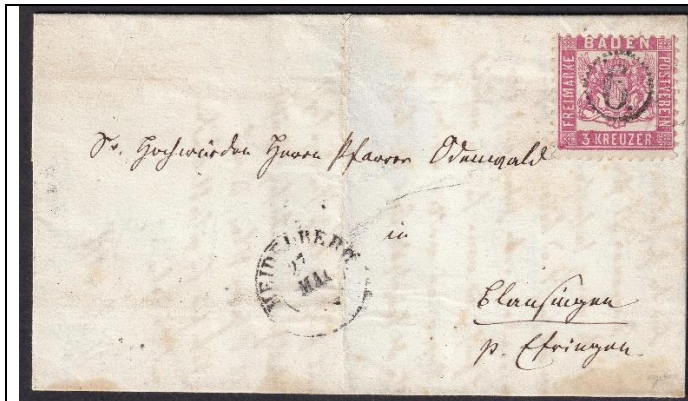 BADEN
FREIMARKE
POSTVEREIN
3 KREUZER
Sr. Hochwürden Herrn Pfarrer Odenwald
in
HEIDELBERG
27
MAI
Blansingen
p. Efringen